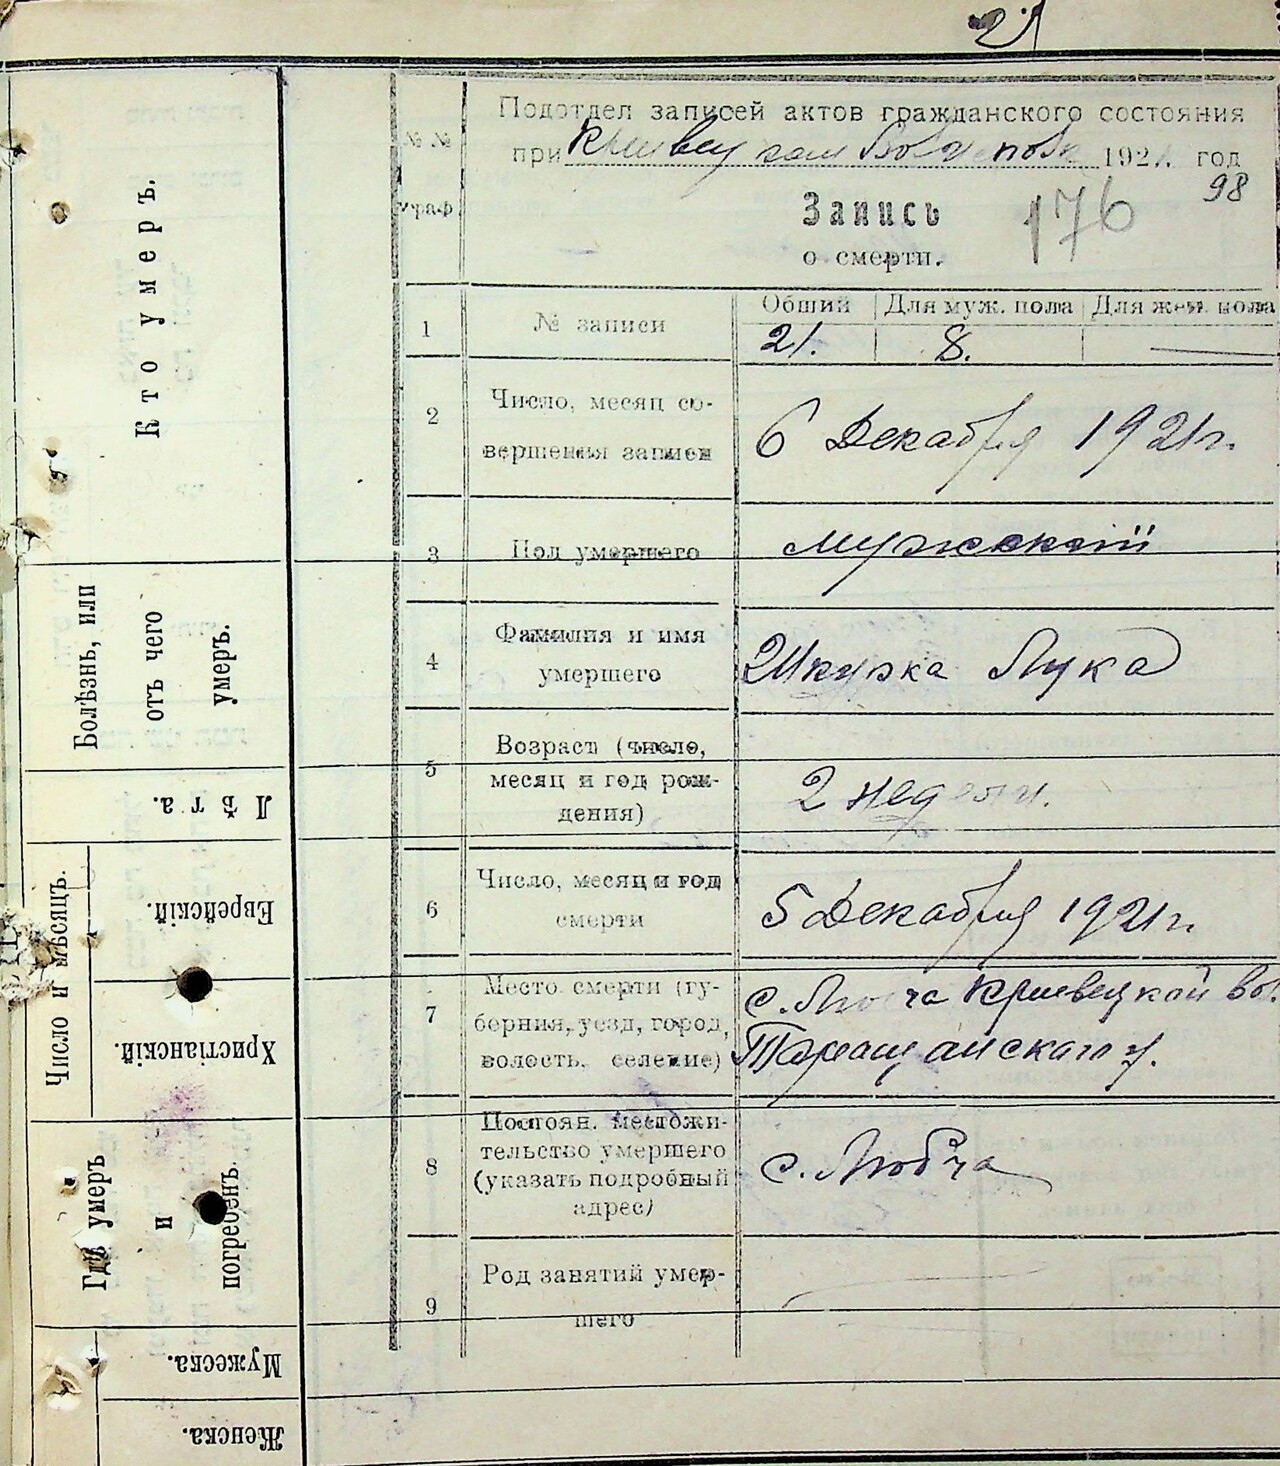 21
Подотдел записей актов гражданского состояния
при Кривец 1921. год
98
Запись
176
о смерти.
№ №
граф
1
№ записи
Общий
Для муж. пола
Для жен. пола
21.
8.
2
Число, месяц со-
вершения записи
6 Декабря 1921 г.
3
Пол умершего
мужский
4
Фамилия и имя
умершего
Шкурка Лука
5
Возраст (число,
месяц и год рож-
дения)
2 недели.
6
Число, месяц и год
смерти
5 Декабря 1921 г.
7
Место смерти (гу-
берния, уезд, город,
волость, селение)
с. Любча Кривецкой во.
Таращанского у.
8
Постоян. местожи-
тельство умершего
(указать подробный
адрес)
с. Любча
9
Род занятий умер-
шего
Кто умеръ.
Болѣзнь, или
отъ чего
умеръ.
Лѣта.
Число и мѣсяцъ.
Еврейскій.
Христіанскій.
Гдѣ умеръ
и
погребенъ.
Мужеска.
Женска.